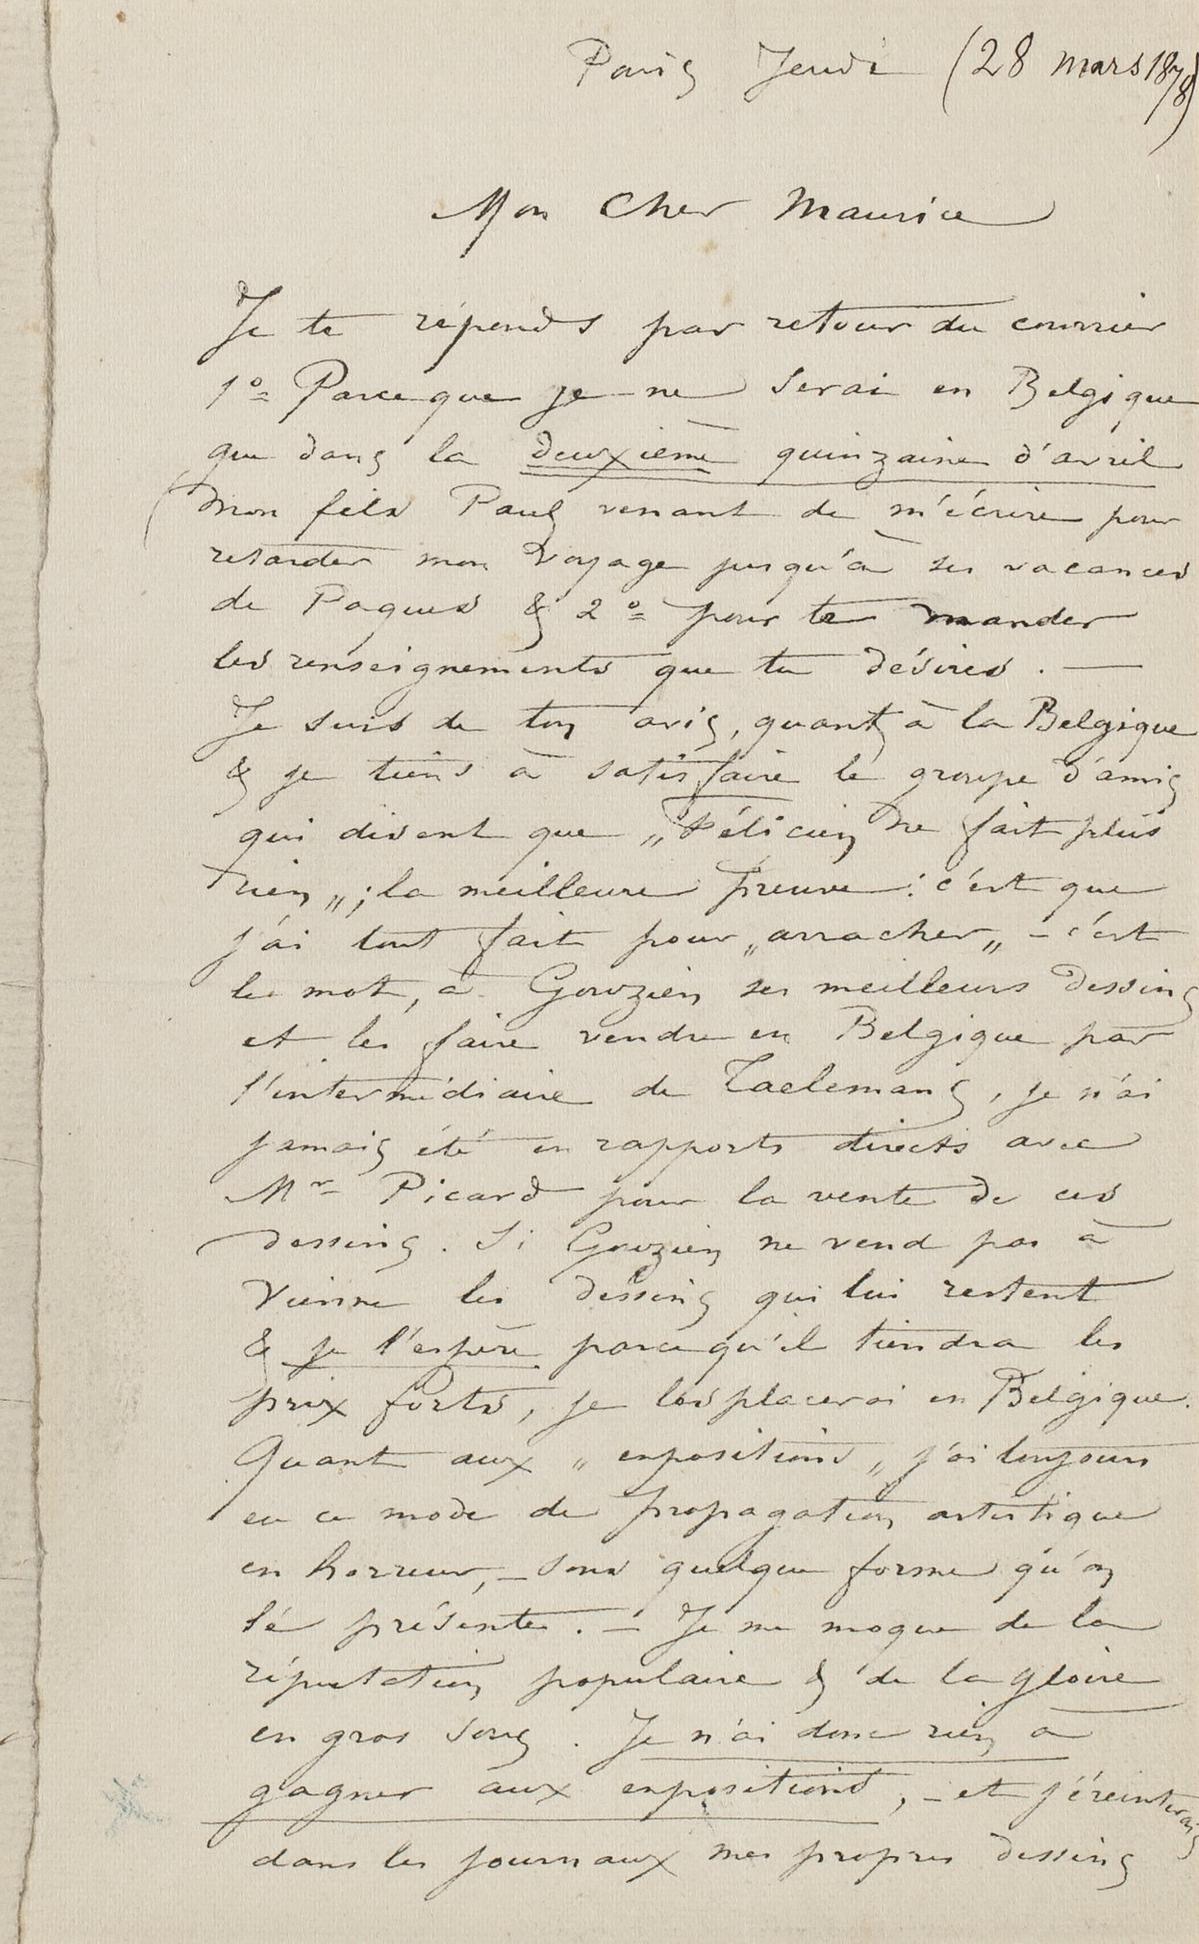 Paris Jeudi (28 mars 1878)
Mon Cher Maurice
Je te réponds par retour du courrier
1º Parceque je ne serai en Belgique
que dans la deuxième quinzaine d'avril
mon fils Paul venant de m'écrire pour
retarder mon voyage jusqu'à ses vacances
de Paques & 2º pour te mander
les renseignements que tu désires. —
Je suis de ton avis, quant à la Belgique
& je tiens à satisfaire le groupe d'amis
qui disent que „Félicien ne fait plus
rien„; la meilleure preuve: c'est que
j'ai tout fait pour „arracher„ - c'est
le mot, à Gouzien ses meilleurs dessins
et les faire vendre en Belgique par
l'intermédiaire de Taelemans, je n'ai
jamais été en rapports directs avec
Mr Picard pour la vente de ces
dessins. Si Gouzien ne vend pas à
Vienne les dessins qui lui restent
& je l'espère parcequ'il tiendra les
prix forts, je les placerai en Belgique.
Quant aux „expositions„ j'ai toujours
eu ce mode de propagation artistique
en horreur, - sous quelque forme qu'on
le présente. — Je me moque de la
réputation populaire & de la gloire
en gros sous. Je n'ai donc rien à
gagner aux expositions, - et j'éreinterais
dans les journaux mes propres dessins